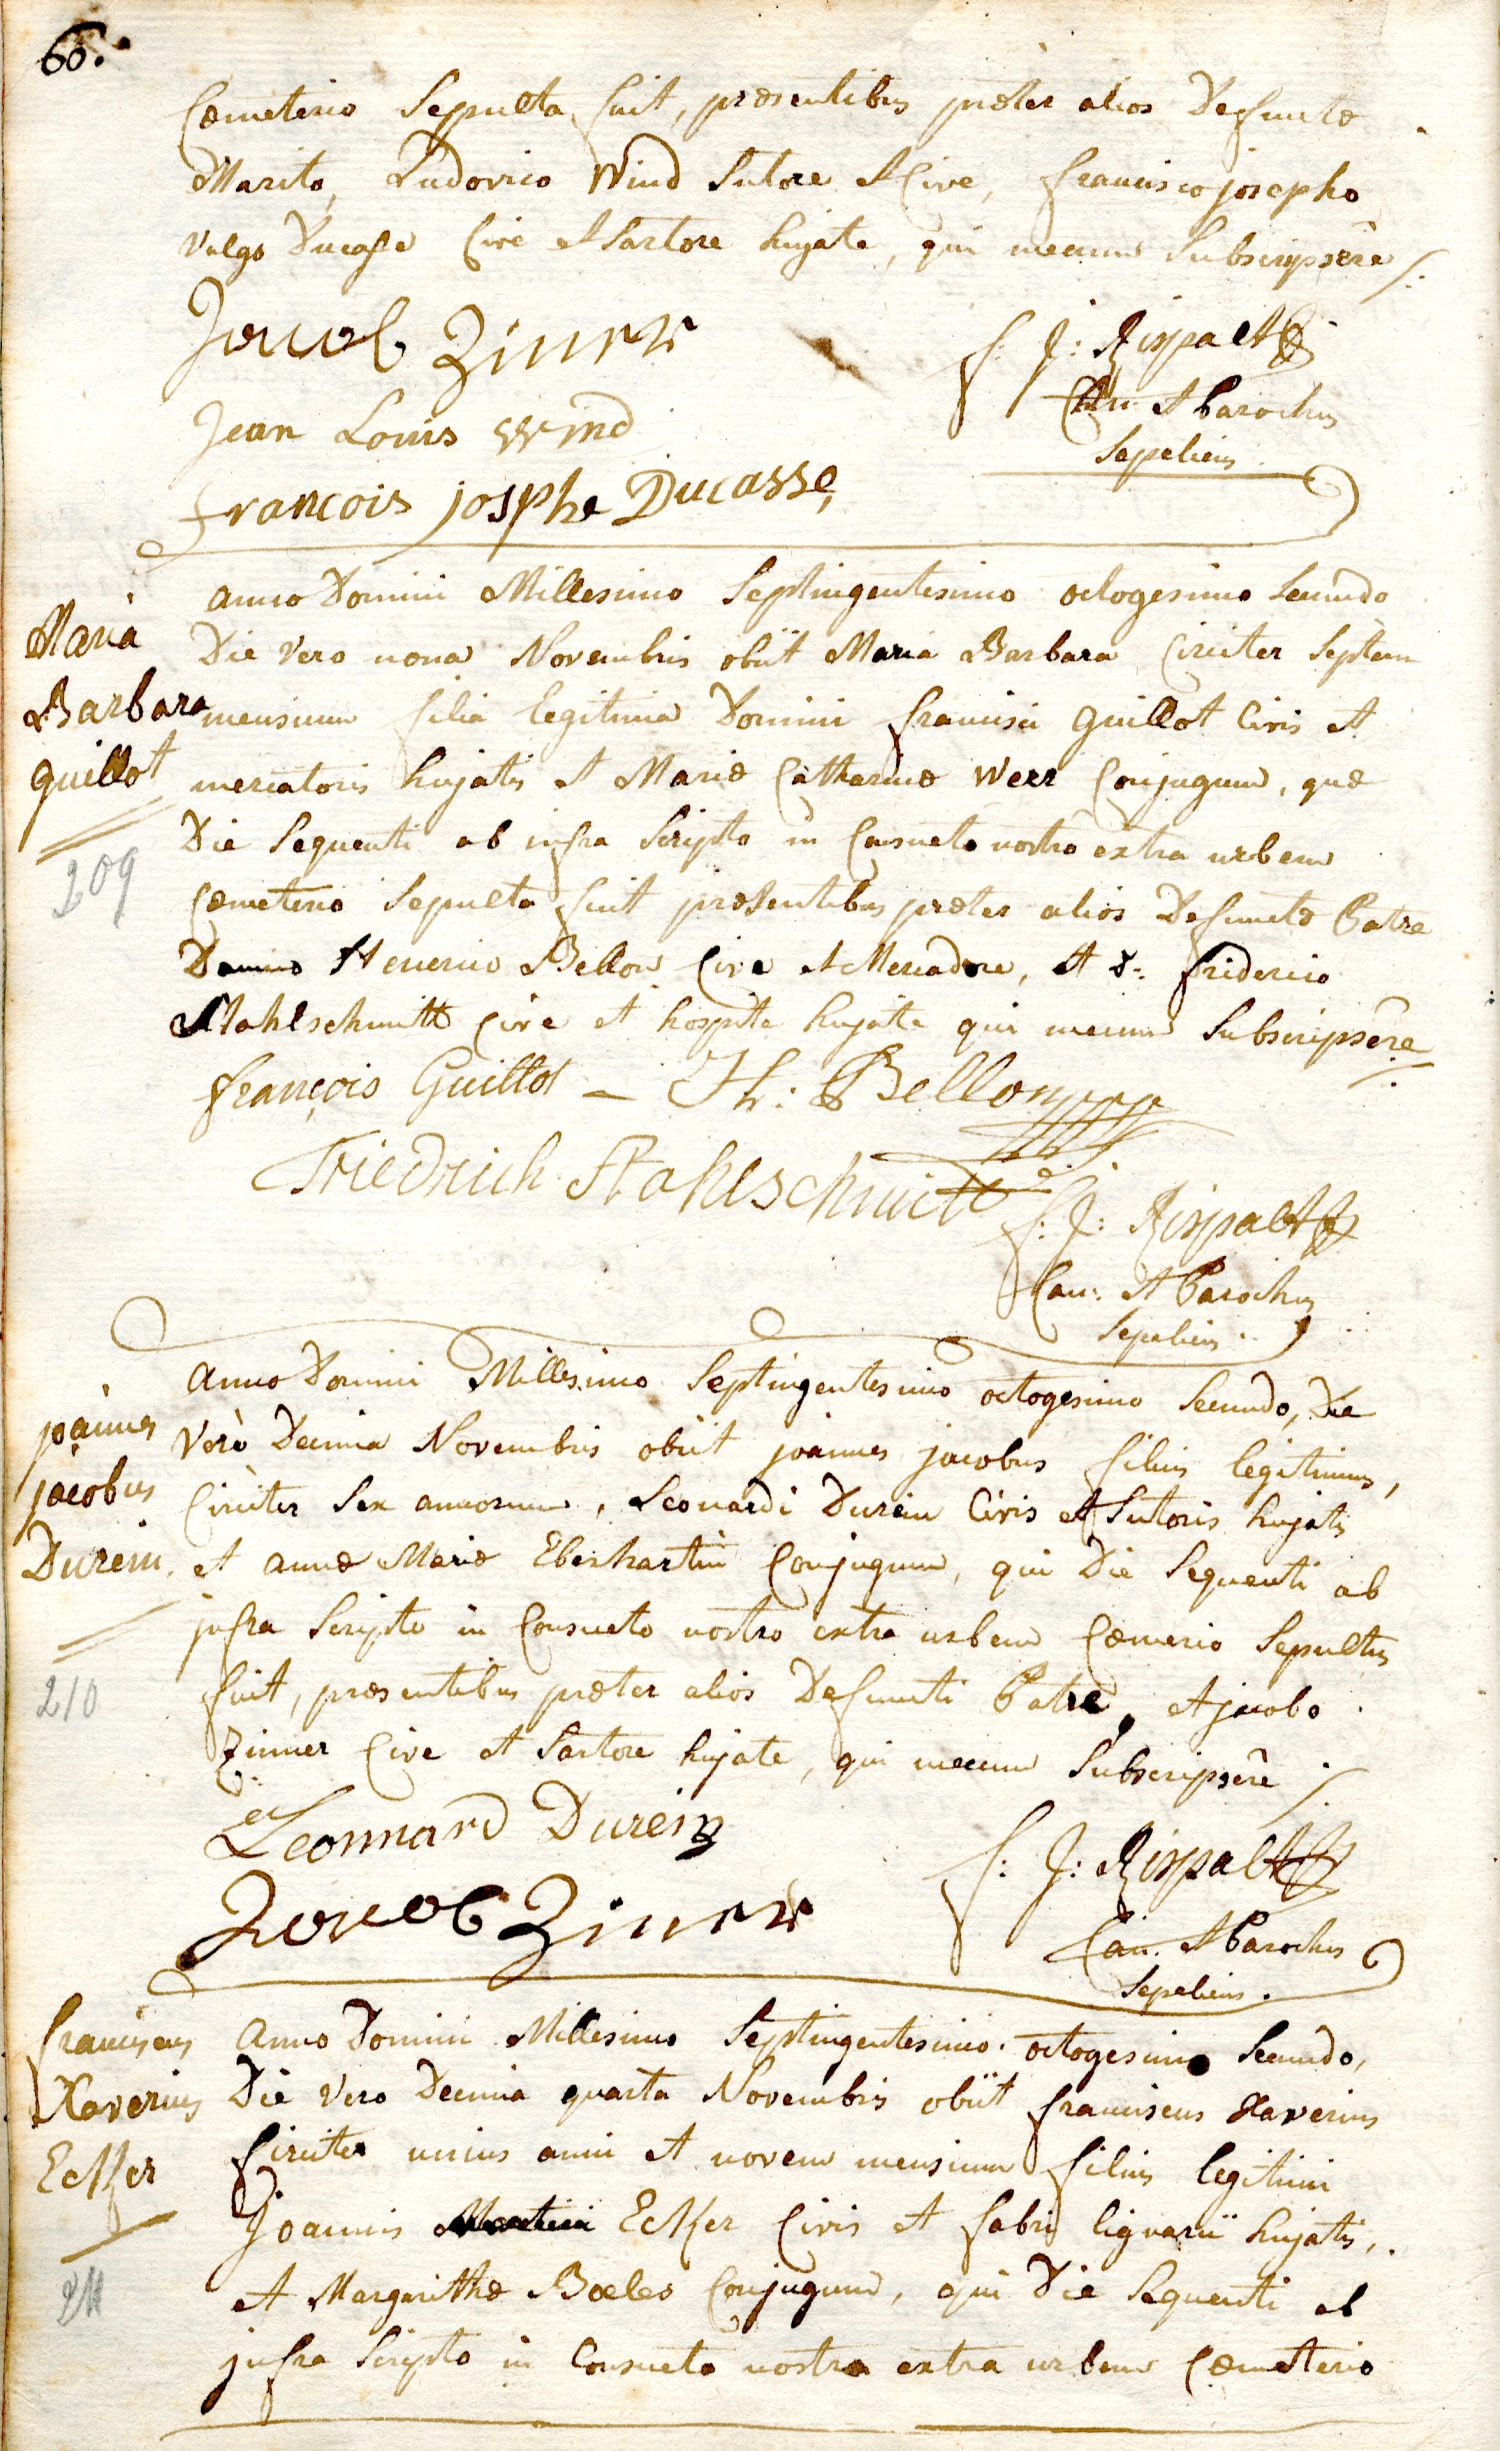 60.
Cœmeterio Sepulta fuit, præsentibus præter alios Defunctæ
Marito, Ludovico Wind Sutore et Cive, francisco josepho
vulgo Ducasse Cive et Sartore hujate, qui mecum Subscripsêre
Jacob Ziner
f: J: Rispalt
Can: et Parochus
Sepeliens
Jean Louis Wind
francois josphe Ducasse
Maria
Barbara
guillot
209
anno Domini Millesimo Septingentesimo octogesimo Secundo
Die vero nona Novembris obiit Maria Barbara Circiter Septem
mensium filia legitima Domini francisci guillot Civis et
mercatoris hujatis et Mariæ Catharinæ Werr Conjugum, quæ
Die Sequenti ab infra Scripto in Consueto nostro extra urbem
Cœmeterio Sepulta fuit præsentibus præter alios Defunctæ Patre
Domino Henerico Bellon Cive et Mercadore, et D: friderico
Stahlschmitt Cive et hospite hujate qui mecum Subscripsêre
françois Guillot - H: Bellon
Friedrich Stahlschmitt
f: J: Rispalt
Can: et Parochus
Sepeliens
joannes
jacobus
Durein.
210
Anno Domini Millesimo Septingentesimo octogesimo Secundo, Die
Verò Decima Novembris obiit joannes jacobus filius legitimus,
Circiter Sex annorum, Leonardi Durein Civis et Sutoris hujatis
et annæ Mariæ Eberhartin Conjugum, qui Die Sequenti ab
jnfra Scripto in Consueto nostro extra urbem Cœmerio Sepultus
fuit, præsentibus præter alios Defuncti Patre, et jacobo
Zinner Cive et Sartore hujate, qui mecum Subscripsêre
Leonnard Durein
Jacob Ziner
f: J: Rispalt
Can. et Parochus
Sepeliens.
franciscus
Xaverius
Ecker
211
Anno Domini Millesimo Septingentesimo octogesimo Secundo,
Die Vero Decima quarta Novembris obiit franciscus Xaverius
Circiter unius anni et novem mensium filius legitimi
Joannis Ecker Civis et fabri lignarii hujatis,
et Margarithæ Bœles Conjugum, qui Die Sequenti ab
jnfra Scripto in Consueto nostro extra urbem Cœmeterio